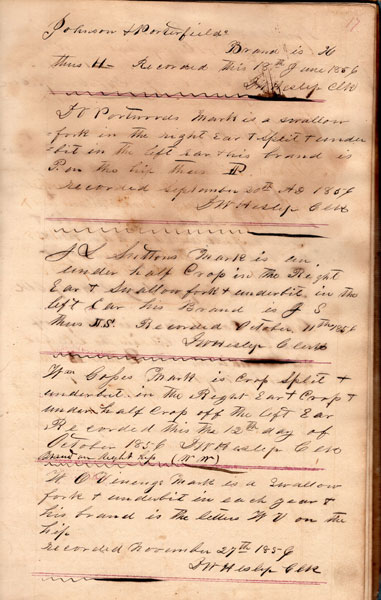 17
Johnson & Porterfields
Brand is H
thus H Recorded this 18th June 1856
JW Heslep Clk
Portwoods Mark is a swallow
fork in the right Ear & Split & under
bit in the left Ear & his brand is
P. on the hip thus P
recorded September 20th AD 1856
JW Heslep Clk
J L Suttons Mark is an
under half Crop in the Right
Ear & Swallow fork & underbit in the
left Ear his Brand is J S
thus JS. Recorded October 11th 1856
JW Heslep Clerk
Wm Gosses Mark is Crop Split &
underbit in the Right Ear & Crop &
under half Crop off the left Ear
Recorded this the 12th day of
October 1856 JW Heslep Clk
Brand on Right hip (W W)
W. O Vinings Mark is a Swallow
fork & underbit in each year &
his brand is the letters W V on the
hip
recorded November 27th 1856
JW Heslep Clk